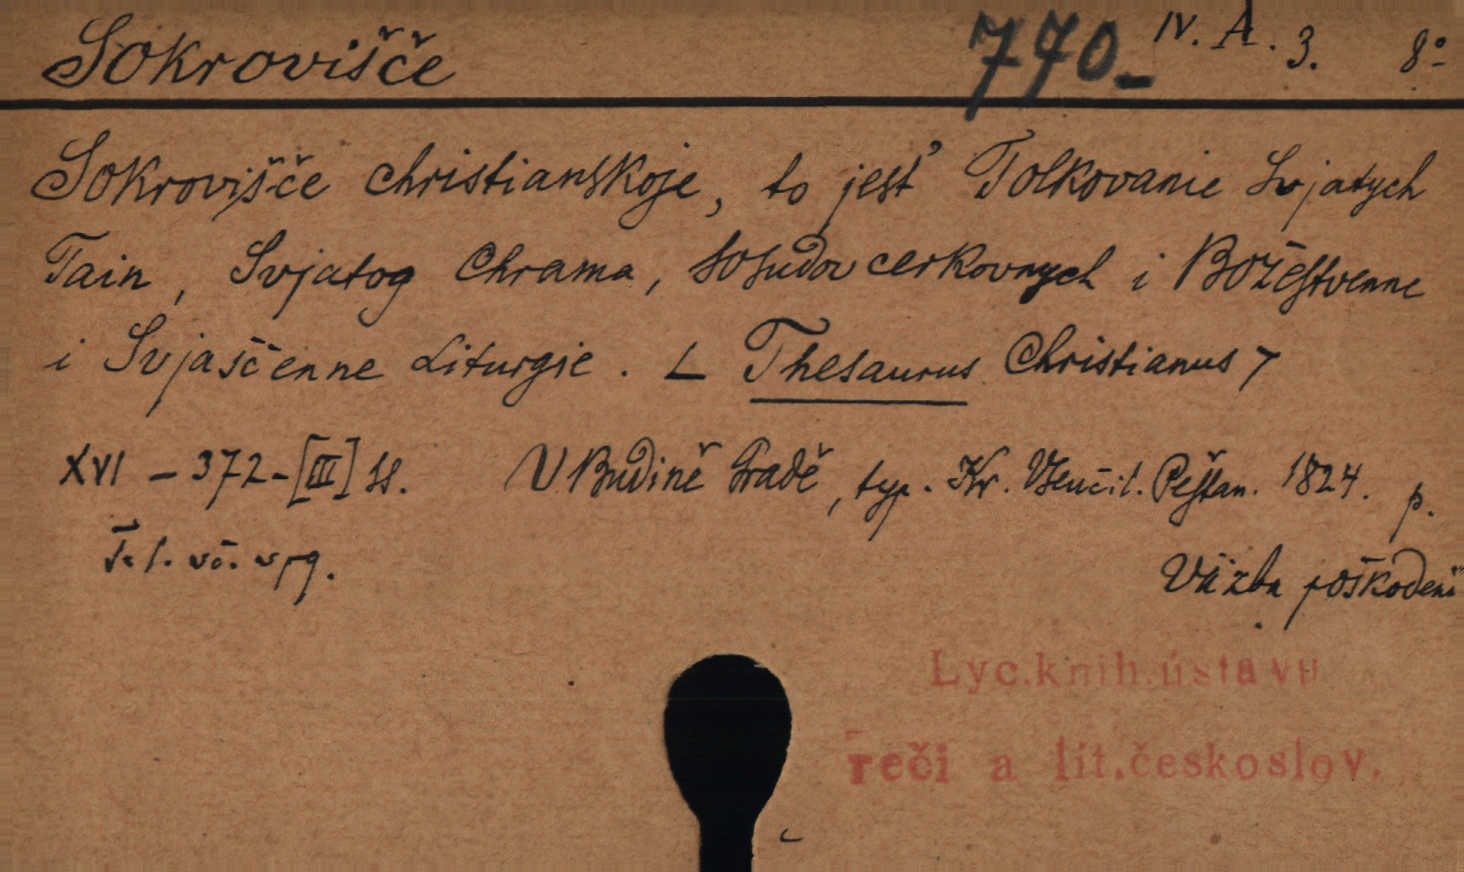 Sokrovišče 770- IV. A. 3. 8°
Sokrovišče christianskoje, to jest' Tolkovanie Svjatych
Tain, Svjatog Chrama, sosudov cerkovnych i Božestvenne
i Svjaščenne Liturgie. [Thesaurus Christianus]
XVI - 372 - [III] ss. V Budině Gradě, typ. Kr. Vseučil. Peštan. 1824. p.
Väzba poškoden
Lyc.knih.ústavu
řeči a lit.českoslov.